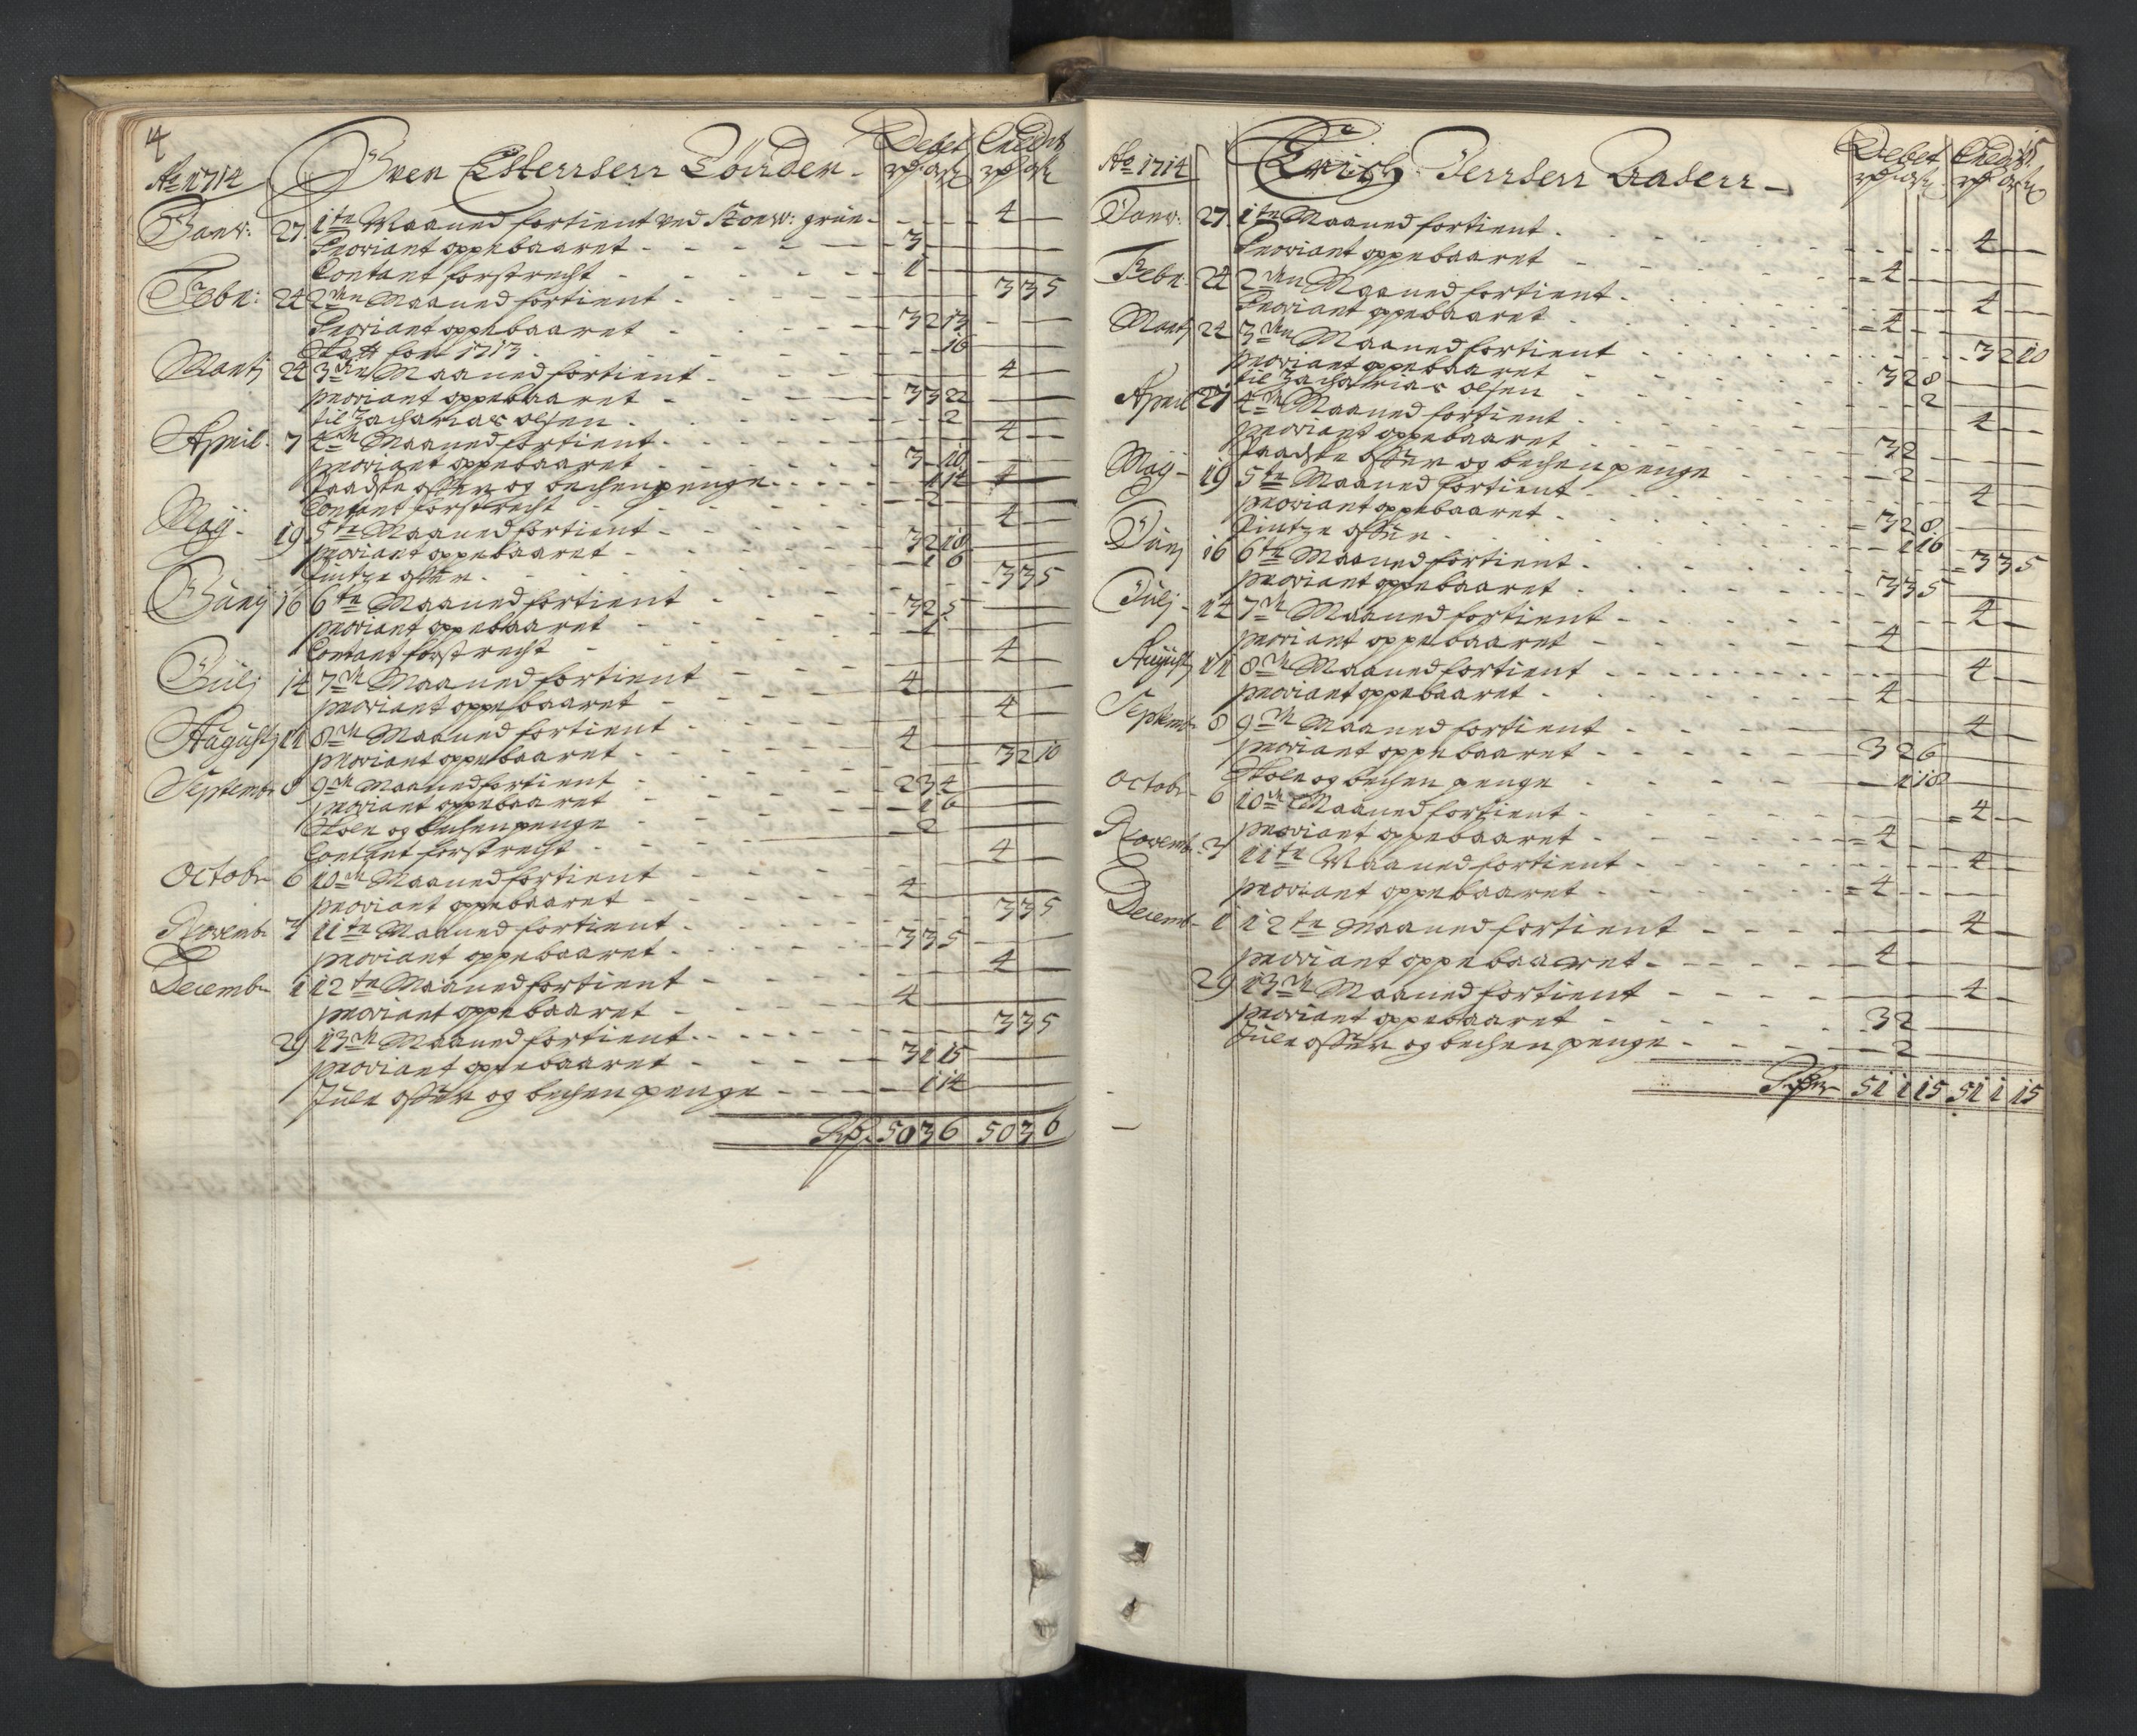 4
Ao 1714 Debet Credit
Janv: 27. 1te Maaned fortient ved Konw: grüv. - - - 4 —
Proviant oppebaaret - - - 3 —
Contant forstrecht - - - 1 —
Febr: 24 2den Maaned fortient - - - 3 3 5
Proviant oppebaaret - - - 3 2 13
Skatt for 1713 - - - 16
Martj 24 3den Maaned fortient - - - 4 —
proviant oppebaaret - - - 3 3 22
til Zacharias olsen - - - 2
April. 7 4de Maaned fortient - - - 4 —
proviant oppebaaret - - - 3 — 10
paaske offer og bechenpenge - - - 1 14
Contant forstrecht - - - 2
Maÿ - 19 5te Maaned fortient - - - 4 —
proviant oppebaaret - - - 3 2 18
pintze offer - - - 1 6
Junÿ 16 6te Maaned fortient - - - 3 3 5
proviant oppebaaret - - - 3 2 5
Contant forstrecht - - - 1
Julj 14 7de Maaned fortient - - - 4 —
proviant oppebaaret - - - 4 —
Augustj 11 8de Maaned fortient - - - 4 —
proviant oppebaaret - - - 4 —
Septembr 8 9de Maaned fortient - - - 3 2 10
proviant oppebaaret - - - 2 3 4
Skole og bechenpenge - - - 1 6
Contant forstrecht - - - 2
Octobr 6 10de Maaned fortient - - - 4 —
proviant oppebaaret - - - 4 —
Novembr 3 11te Maaned fortient - - - 3 3 5
proviant oppebaaret - - - 3 3 5
Decembr 1 12te Maaned fortient - - - 4 —
proviant oppebaaret - - - 4 —
29 13de Maaned fortient - - - 3 3 5
proviant oppebaaret - - - 3 1 15
Jüle offer og bechenpenge - - - 1 14
50 3 6 50 3 6
15
Ao 1714 Debet Credit
Janv: 27. 1te Maaned fortient - - - 4 —
Proviant oppebaaret - - - 4 —
Febr. 24 2den Maaned fortient - - - 4 —
Proviant oppebaaret - - - 4 —
Martj 24 3den Maaned fortient - - - 3 2 10
proviant oppebaaret - - - 3 2 8
til Zacharias olsen - - - 2
April 27 4de Maaned fortient - - - 4 —
proviant oppebaaret - - - 3 2
paaske offer og bechenpenge - - - 2
Maÿ - 19 5te Maaned fortient - - - 4 —
proviant oppebaaret - - - 3 2 8
Pintze offer - - - 1 16
Junj 16 6te Maaned fortient - - - 3 3 5
proviant oppebaaret - - - 3 3 5
Julj - 14 7de Maaned fortient - - - 4 —
proviant oppebaaret - - - 4 —
Augustj 11 8de Maaned fortient - - - 4 —
proviant oppebaaret - - - 4 —
Septembr 8 9de Maaned fortient - - - 4 —
proviant oppebaaret - - - 3 2 6
Skole og bechen penge - - - 1 18
Octobr - 6 10de Maaned fortient - - - 4 —
proviant oppebaaret - - - 4 —
Novembr. 3 11te Maaned fortient - - - 4 —
proviant oppebaaret - - - 4 —
Decemb - 1 12te Maaned fortient - - - 4 —
proviant oppebaaret - - - 4 —
29 13de Maaned fortient - - - 4 —
proviant oppebaaret - - - 3 2
Jüle offer og bechenpenge - - - 2
51 1 15 51 1 15